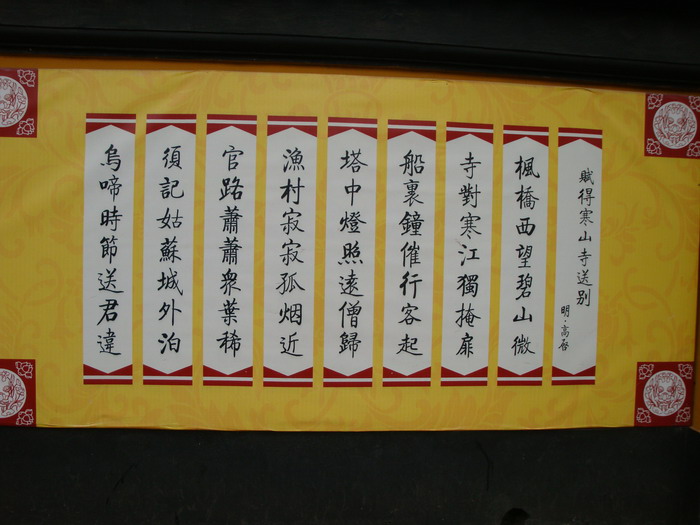 賦得寒山寺送别
明·高啓
楓橋西望碧山微
寺對寒江獨掩扉
船裏鐘催行客起
塔中燈照遠僧歸
漁村寂寂孤烟近
官路蕭蕭衆葉稀
須記姑蘇城外泊
烏啼時節送君違